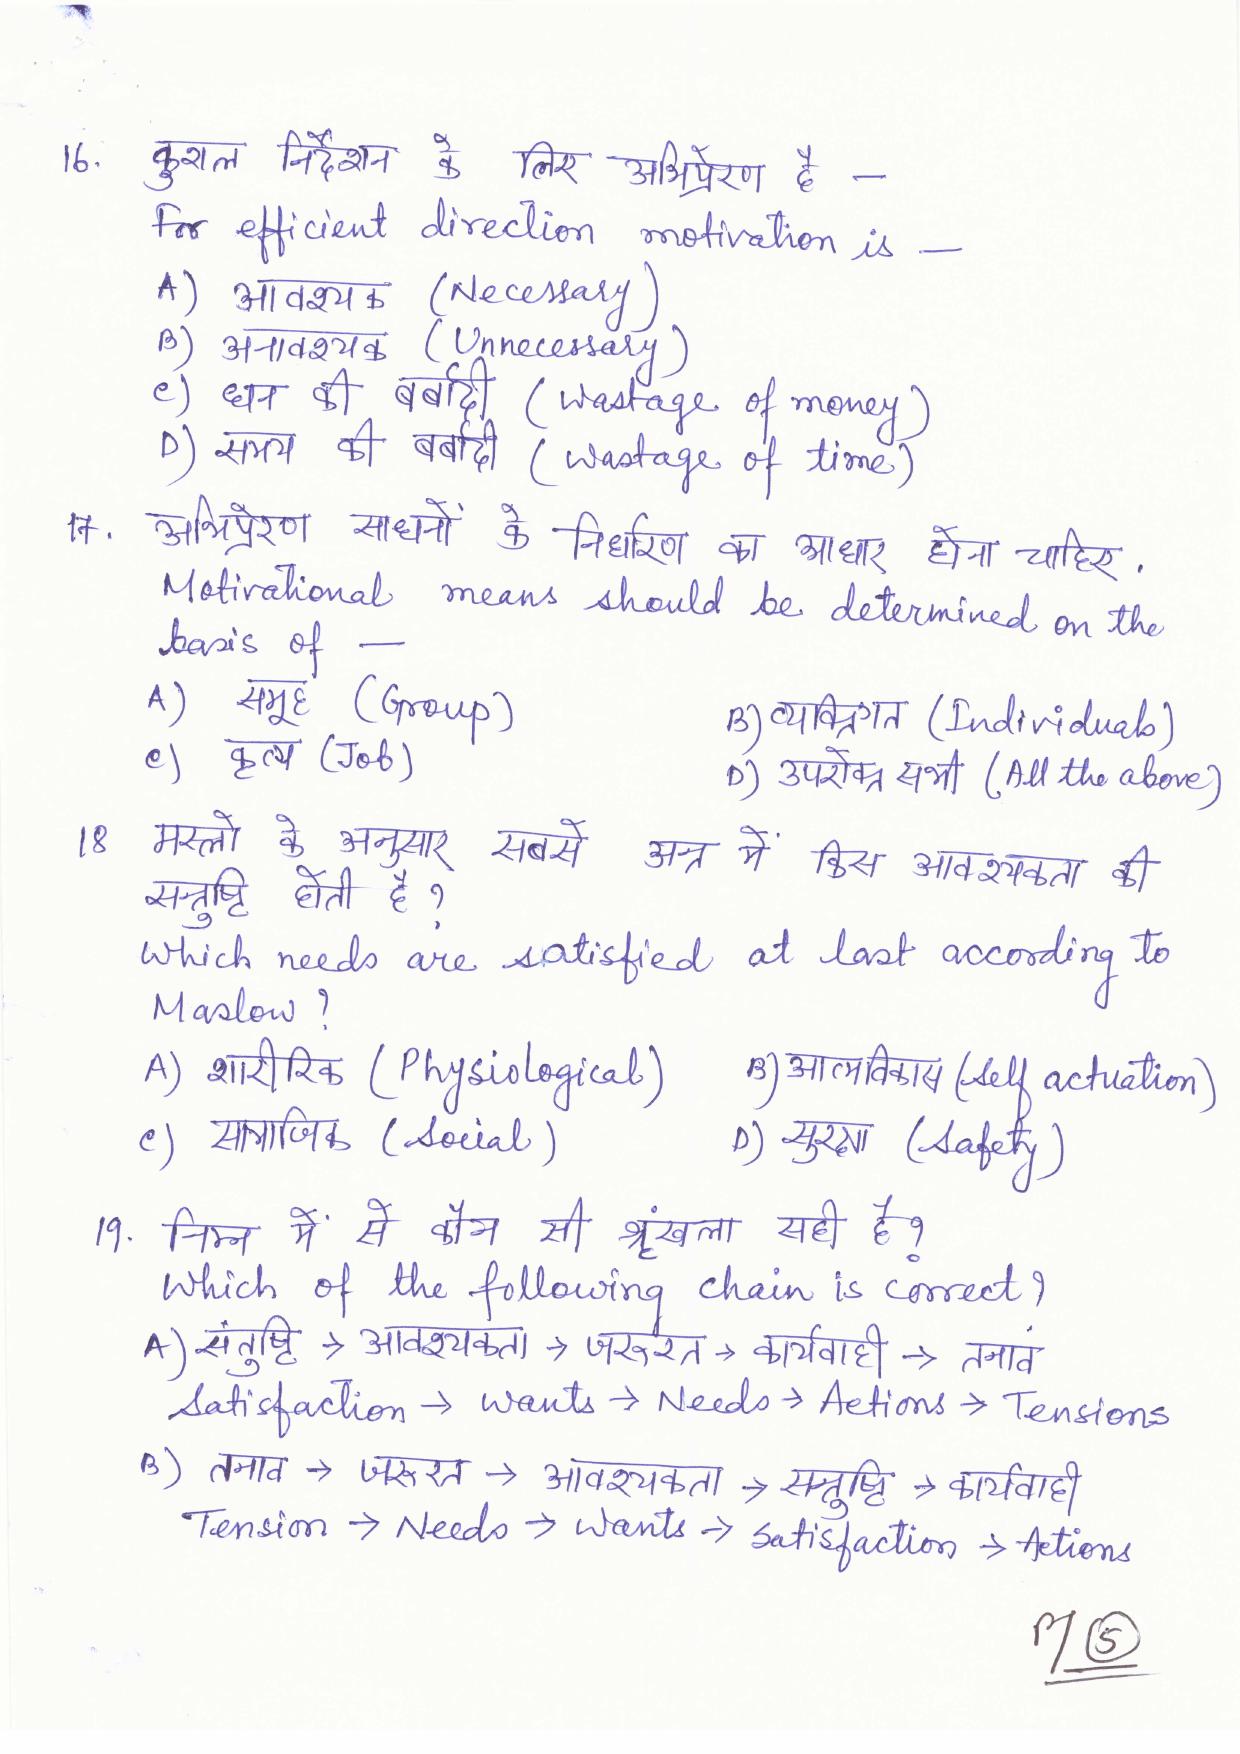 16. कुशल निर्देशन के लिए अभिप्रेरण है —
For efficient direction motivation is —
A) आवश्यक (Necessary)
B) अनावश्यक (Unnecessary)
C) धन की बर्बादी (Wastage of money)
D) समय की बर्बादी (Wastage of time)
17. अभिप्रेरण साधनों के निर्धारण का आधार होना चाहिए.
Motivational means should be determined on the
basis of —
A) समूह (Group) B) व्यक्तिगत (Individuals)
C) कृत्य (Job) D) उपरोक्त सभी (All the above)
18 मस्लो के अनुसार सबसे अन्त में किस आवश्यकता की
सन्तुष्टि होती है ?
Which needs are satisfied at last according to
Maslow ?
A) शारीरिक (Physiological) B) आत्मविकास (Self actuation)
C) सामाजिक (Social) D) सुरक्षा (Safety)
19. निम्न में से कौन सी श्रृंखला सही है ?
Which of the following chain is correct ?
A) संतुष्टि → आवश्यकता → जरूरत → कार्यवाही → तनाव
Satisfaction → Wants → Needs → Actions → Tensions
B) तनाव → जरूरत → आवश्यकता → सन्तुष्टि → कार्यवाही
Tension → Needs → Wants → Satisfaction → Actions
P/5